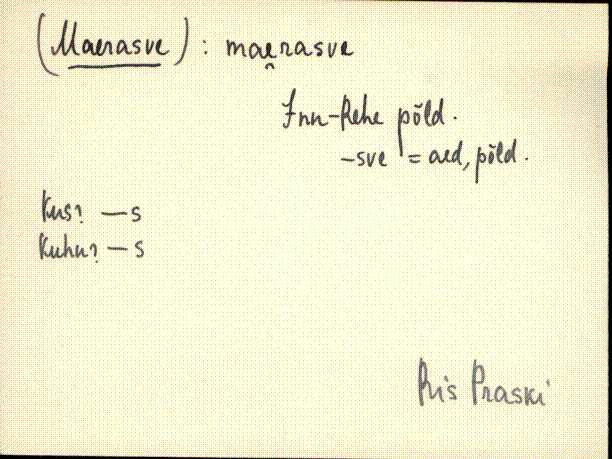 (Maerasve) : maerasve
Inn-Rehe põld.
-sve = aed, põld.
Kus? —s
Kuhu? —s
Priis Praski